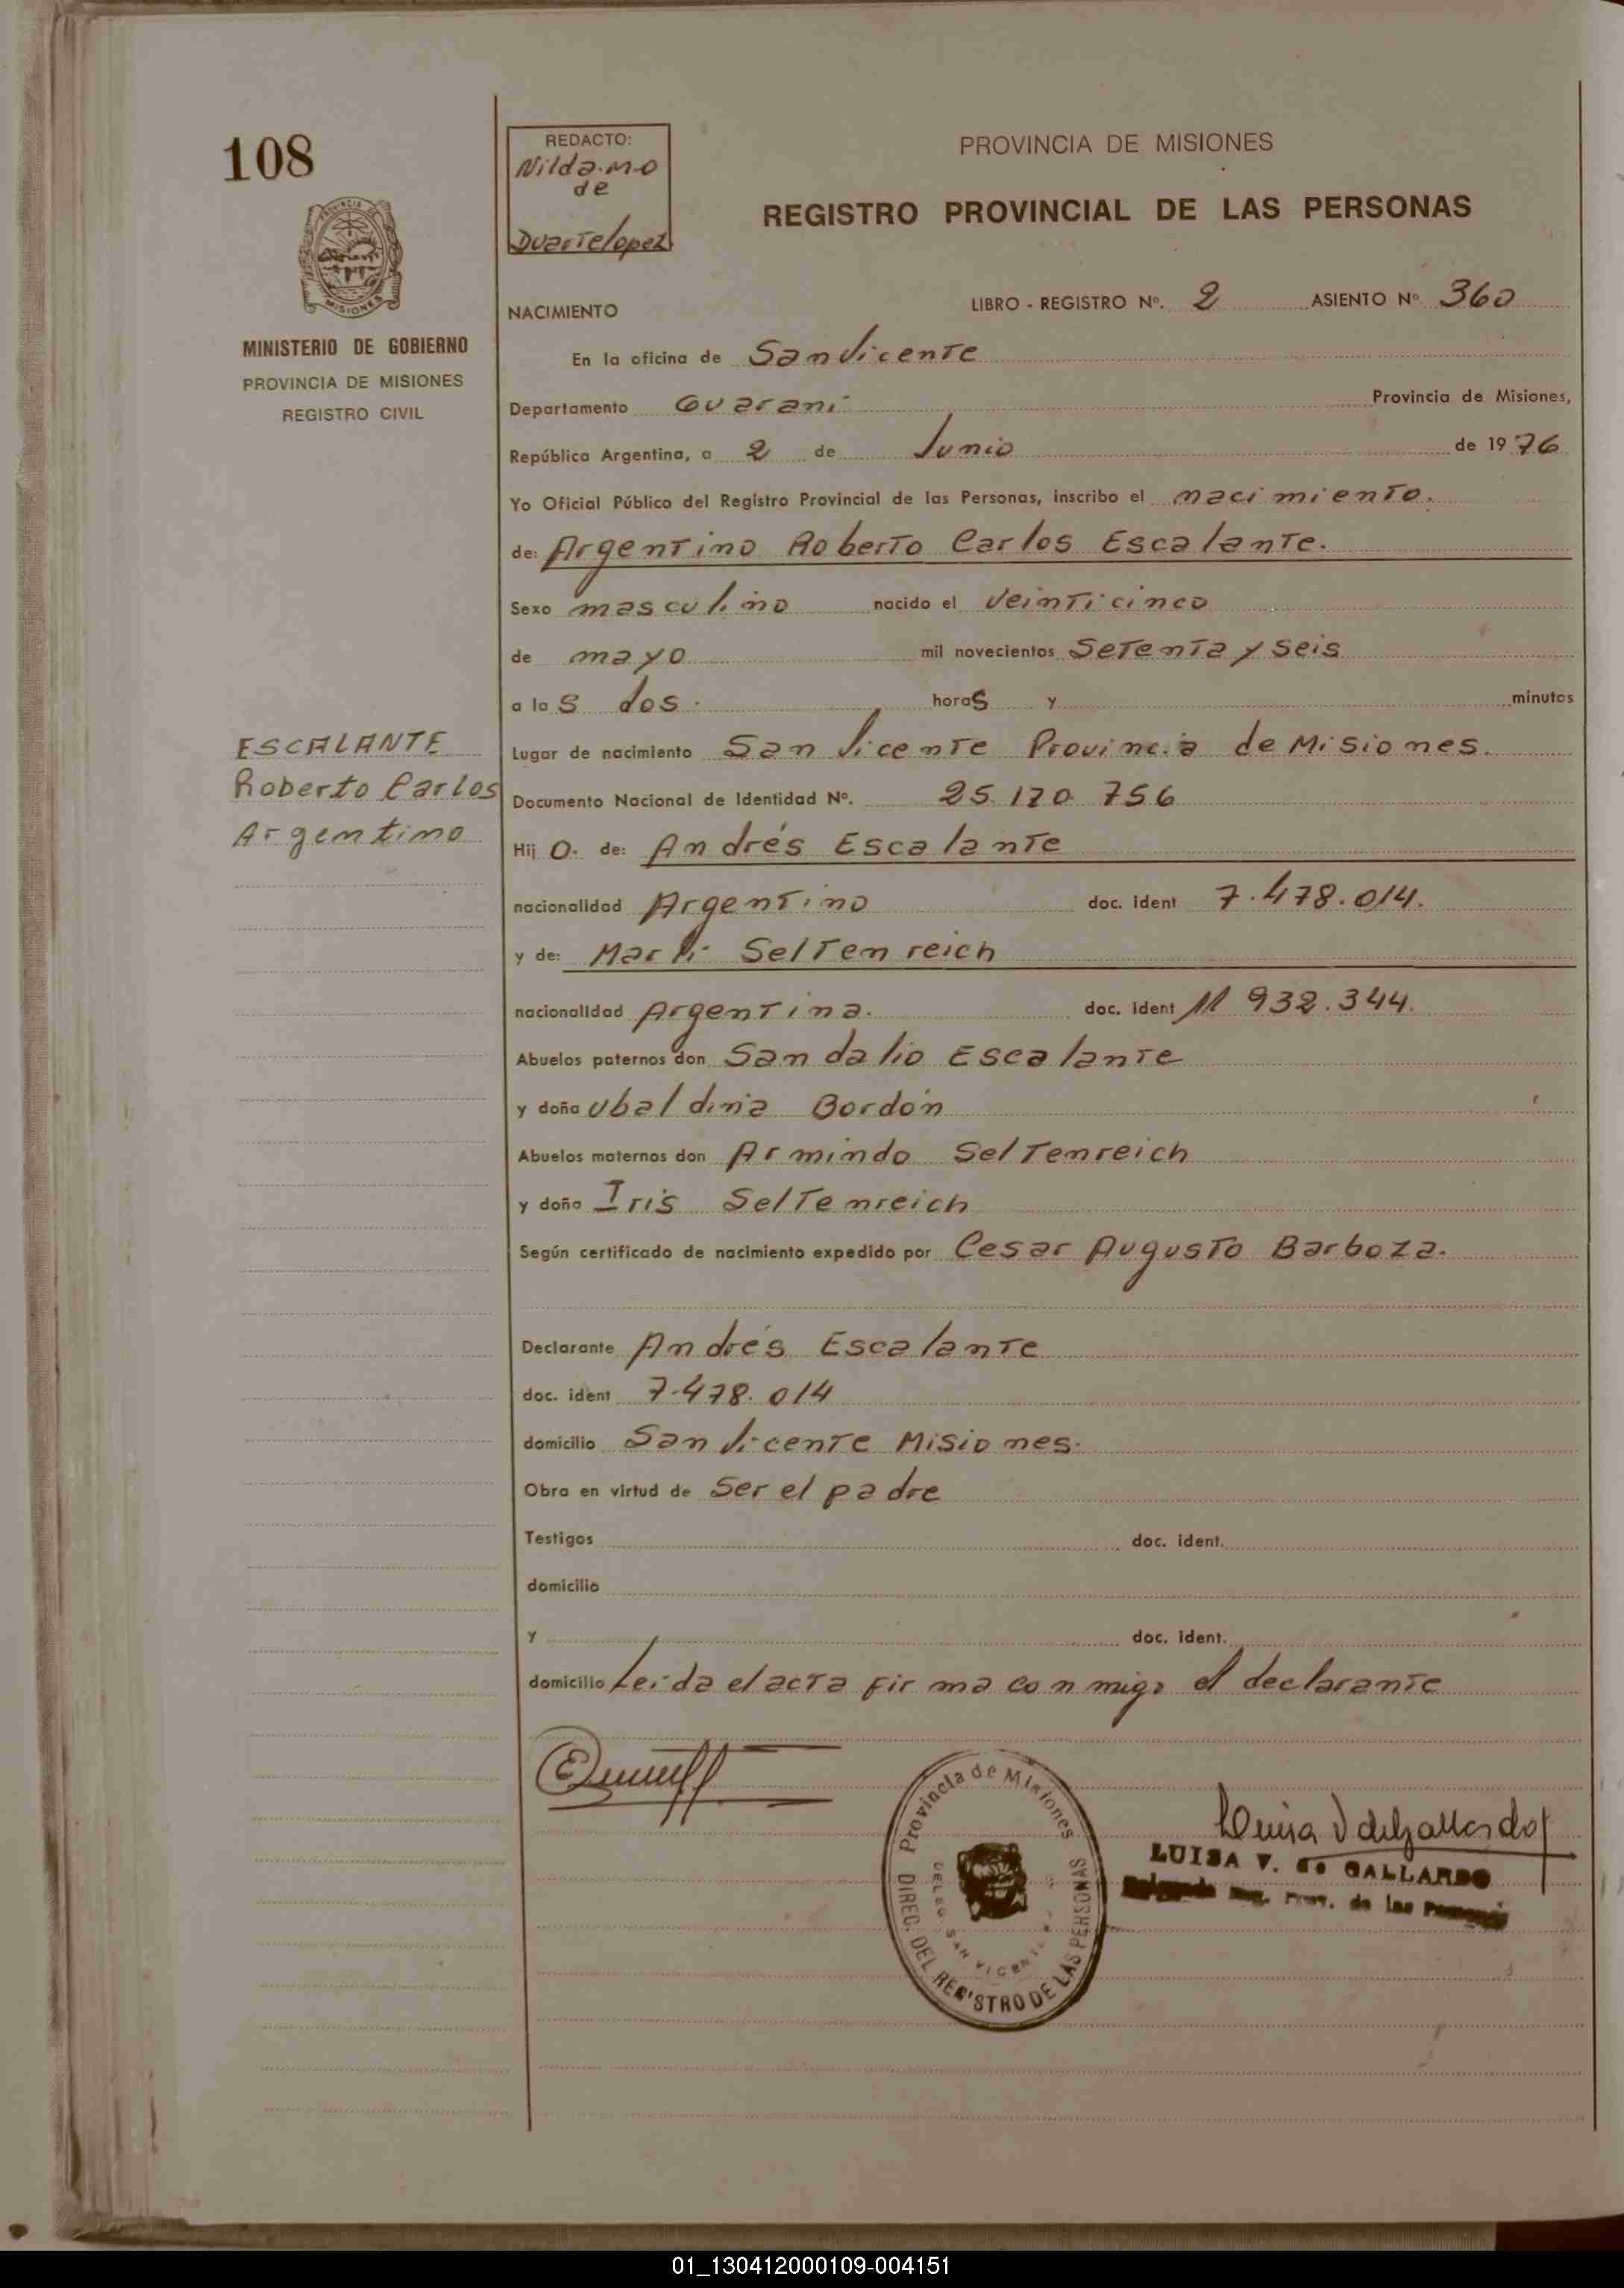 108
REDACTO:
Nilda.M.O
de
Duarte lopez
PROVINCIA DE MISIONES
REGISTRO PROVINCIAL DE LAS PERSONAS
PROVINCIA DE
MISIONES
MINISTERIO DE GOBIERNO
PROVINCIA DE MISIONES
REGISTRO CIVIL
NACIMIENTO
LIBRO - REGISTRO Nº. 2 ASIENTO Nº 360
En la oficina de San Vicente
Departamento Guarani Provincia de Misiones,
República Argentina, a 2 de Junio de 1976
Yo Oficial Público del Registro Provincial de las Personas, inscribo el nacimiento.
de: Argentino Roberto Carlos Escalante.
Sexo masculino nacido el Veinticinco
de mayo mil novecientos Setenta y Seis
a las dos. horas y minutos
Lugar de nacimiento San Vicente Provincia de Misiones.
Documento Nacional de Identidad Nº. 25.170.756
Hijo. de: Andrés Escalante
nacionalidad Argentino doc. ident 7.478.014.
y de: Marli Seltenreich
nacionalidad Argentina. doc. ident 11 932.344.
Abuelos paternos don Sandalio Escalante
y doña Ubaldina Bordón
Abuelos maternos don Armindo Seltenreich
y doña Iris Seltenreich
Según certificado de nacimiento expedido por Cesar Augusto Barboza.
ESCALANTE
Roberto Carlos
Argentino
Declarante Andrés Escalante
doc. ident 7.478.014
domicilio San Vicente Misiones.
Obra en virtud de Ser el padre
Testigos doc. ident.
domicilio
y doc. ident.
domicilio Leida el acta firma conmigo el declarante
Provincia de Misiones
DIREC. DEL REGISTRO DE LAS PERSONAS
DELEG. SAN VICENTE
Luisa V de Gallardo
LUISA V. de GALLARDO
Delegada Reg. Prov. de las Personas
01_130412000109-004151